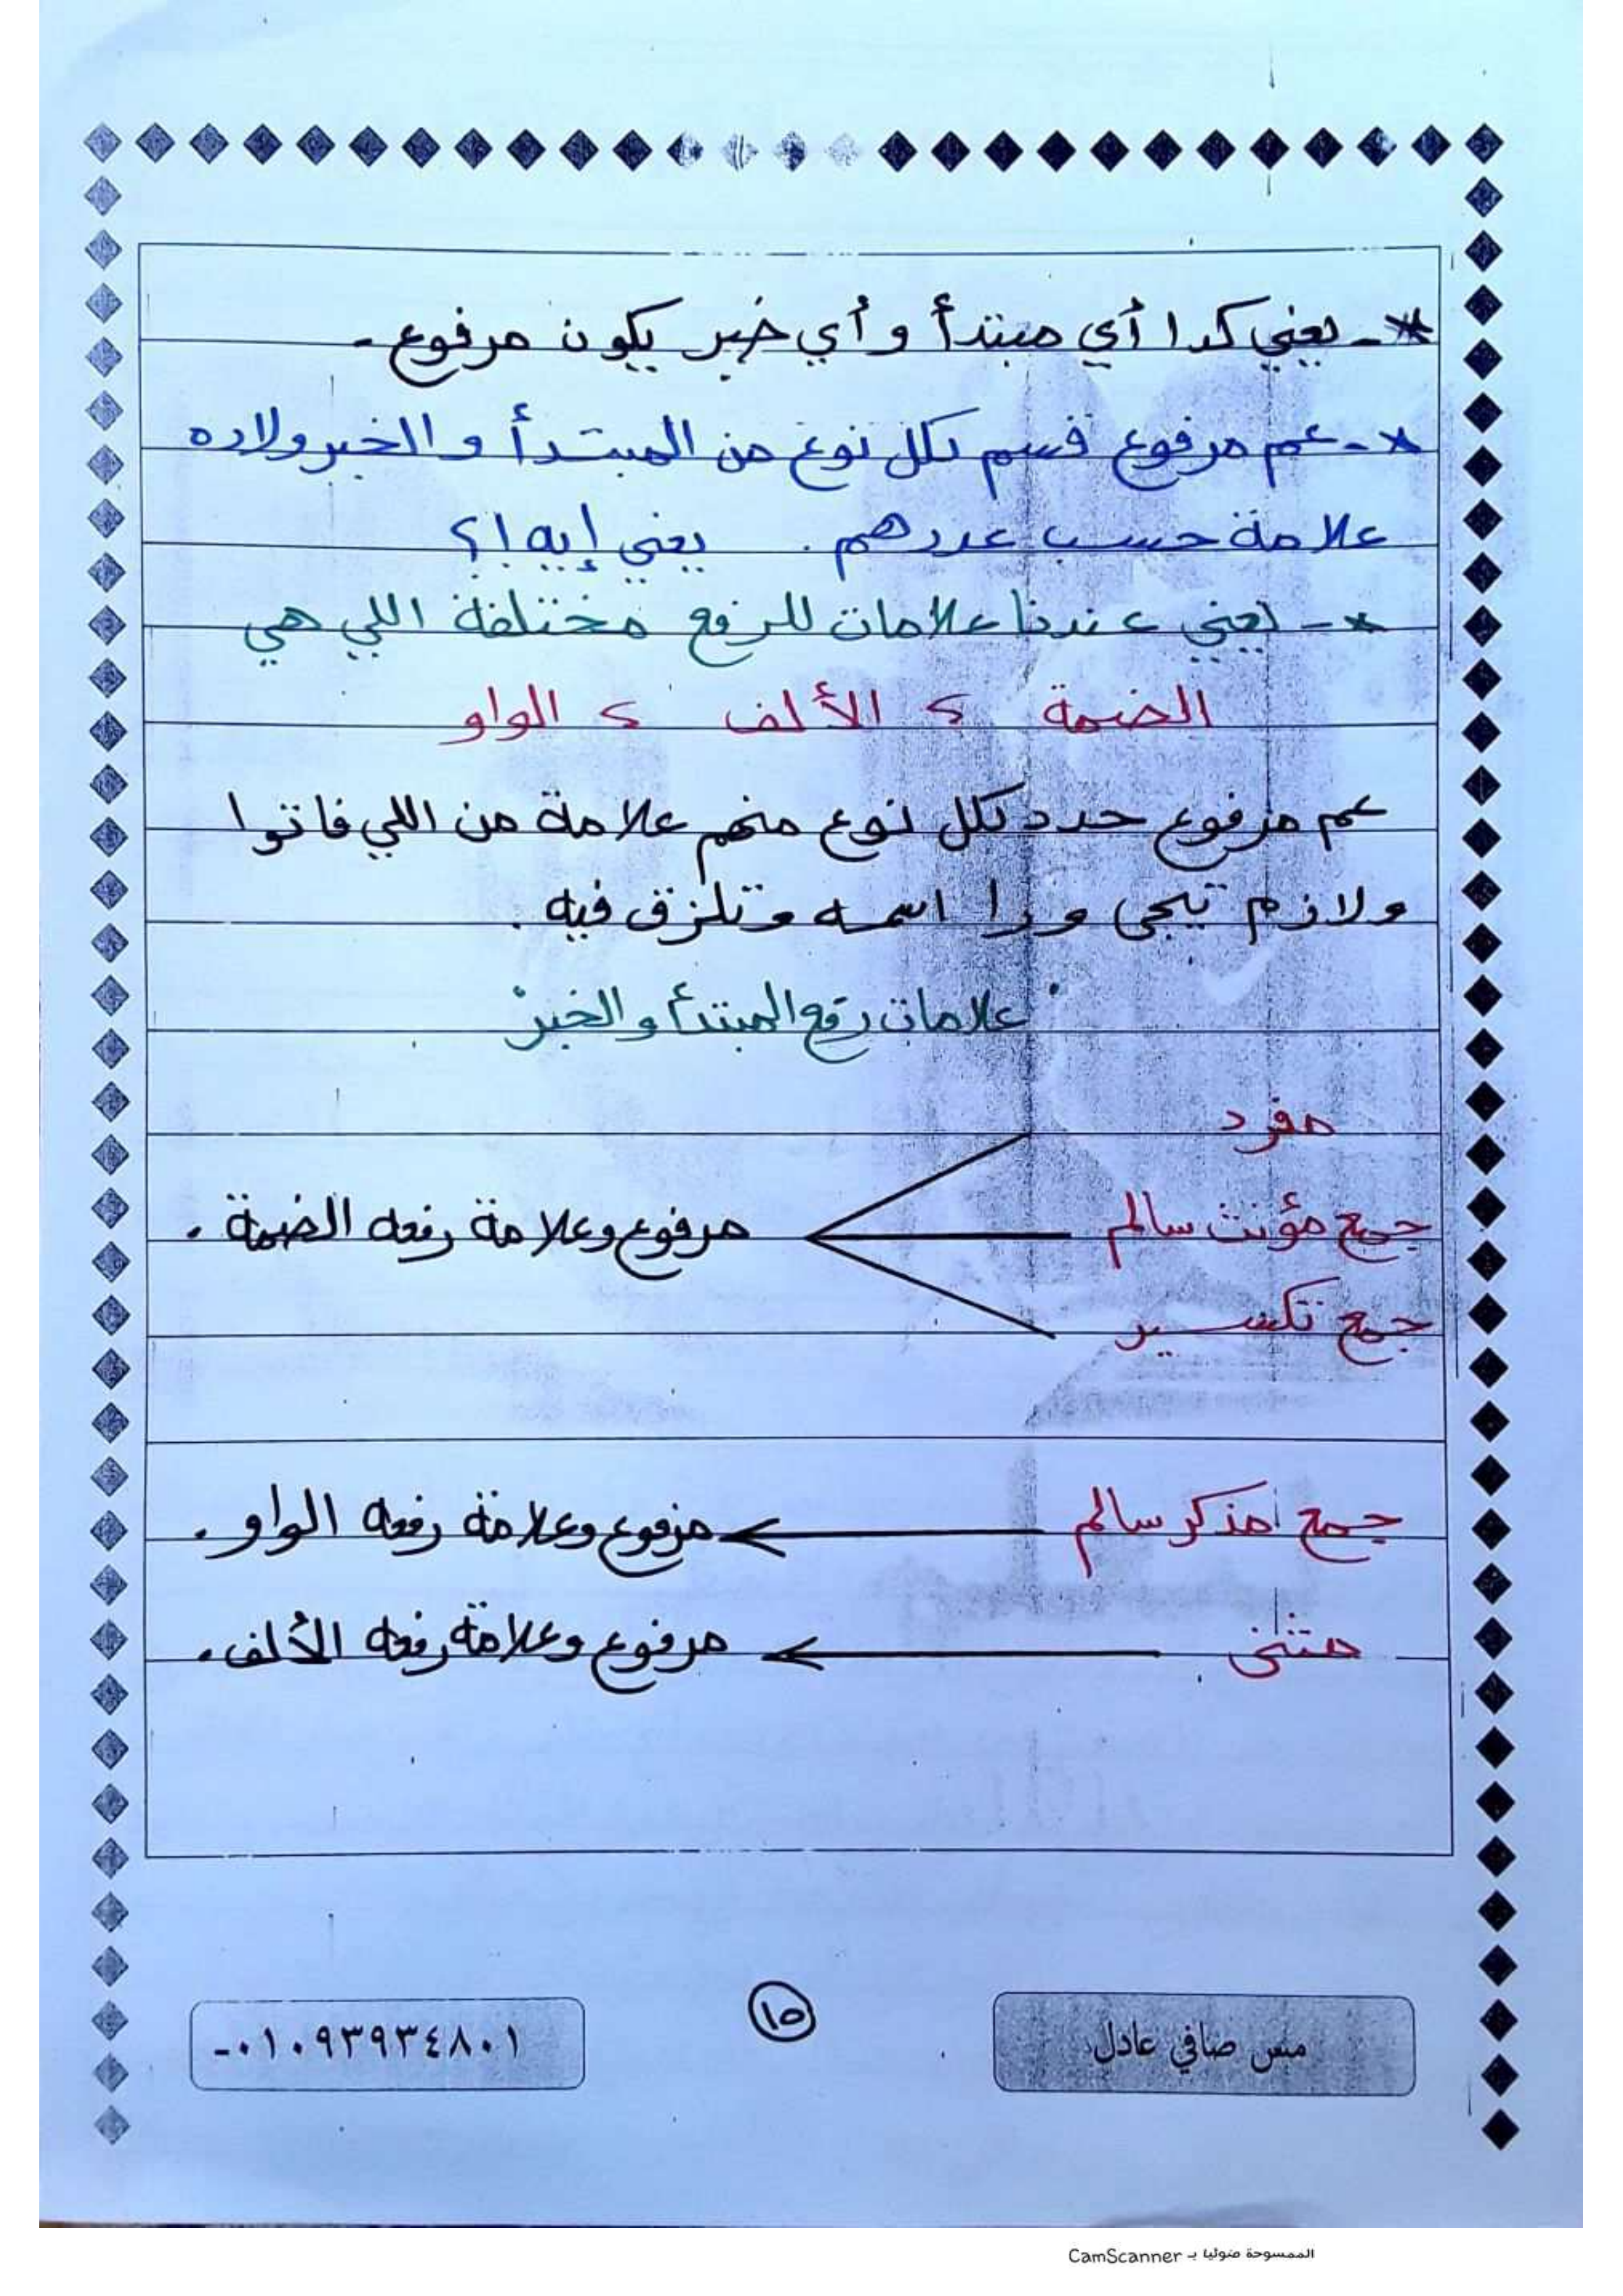 *- يعني كدا أي مبتدأ و أي خبر يكون مرفوع.
*- عم مرفوع قسم لكل نوع من المبتدأ و الخبر ولاده
علامة حسب عددهم . يعني إيه ا؟
*- يعني عندنا علامات للرفع مختلفة اللي هي
الضمة ، الألف ، الواو
عم مرفوع حدد لكل نوع منهم علامة من اللي فاتوا
ولازم تيجي ورا اسمه وتلزق فيه .
" علامات رفع المبتدأ و الخبر "
مفرد
جمع مؤنث سالم مرفوع وعلامة رفعه الضمة .
جمع تكسير
جمع مذكر سالم مرفوع وعلامة رفعه الواو .
مثنى مرفوع وعلامة رفعه الألف .
مس صافي عادل ١٥ ٠١٠٩٣٩٣٤٨٠١-
الممسوحة ضوئيا بـ CamScanner